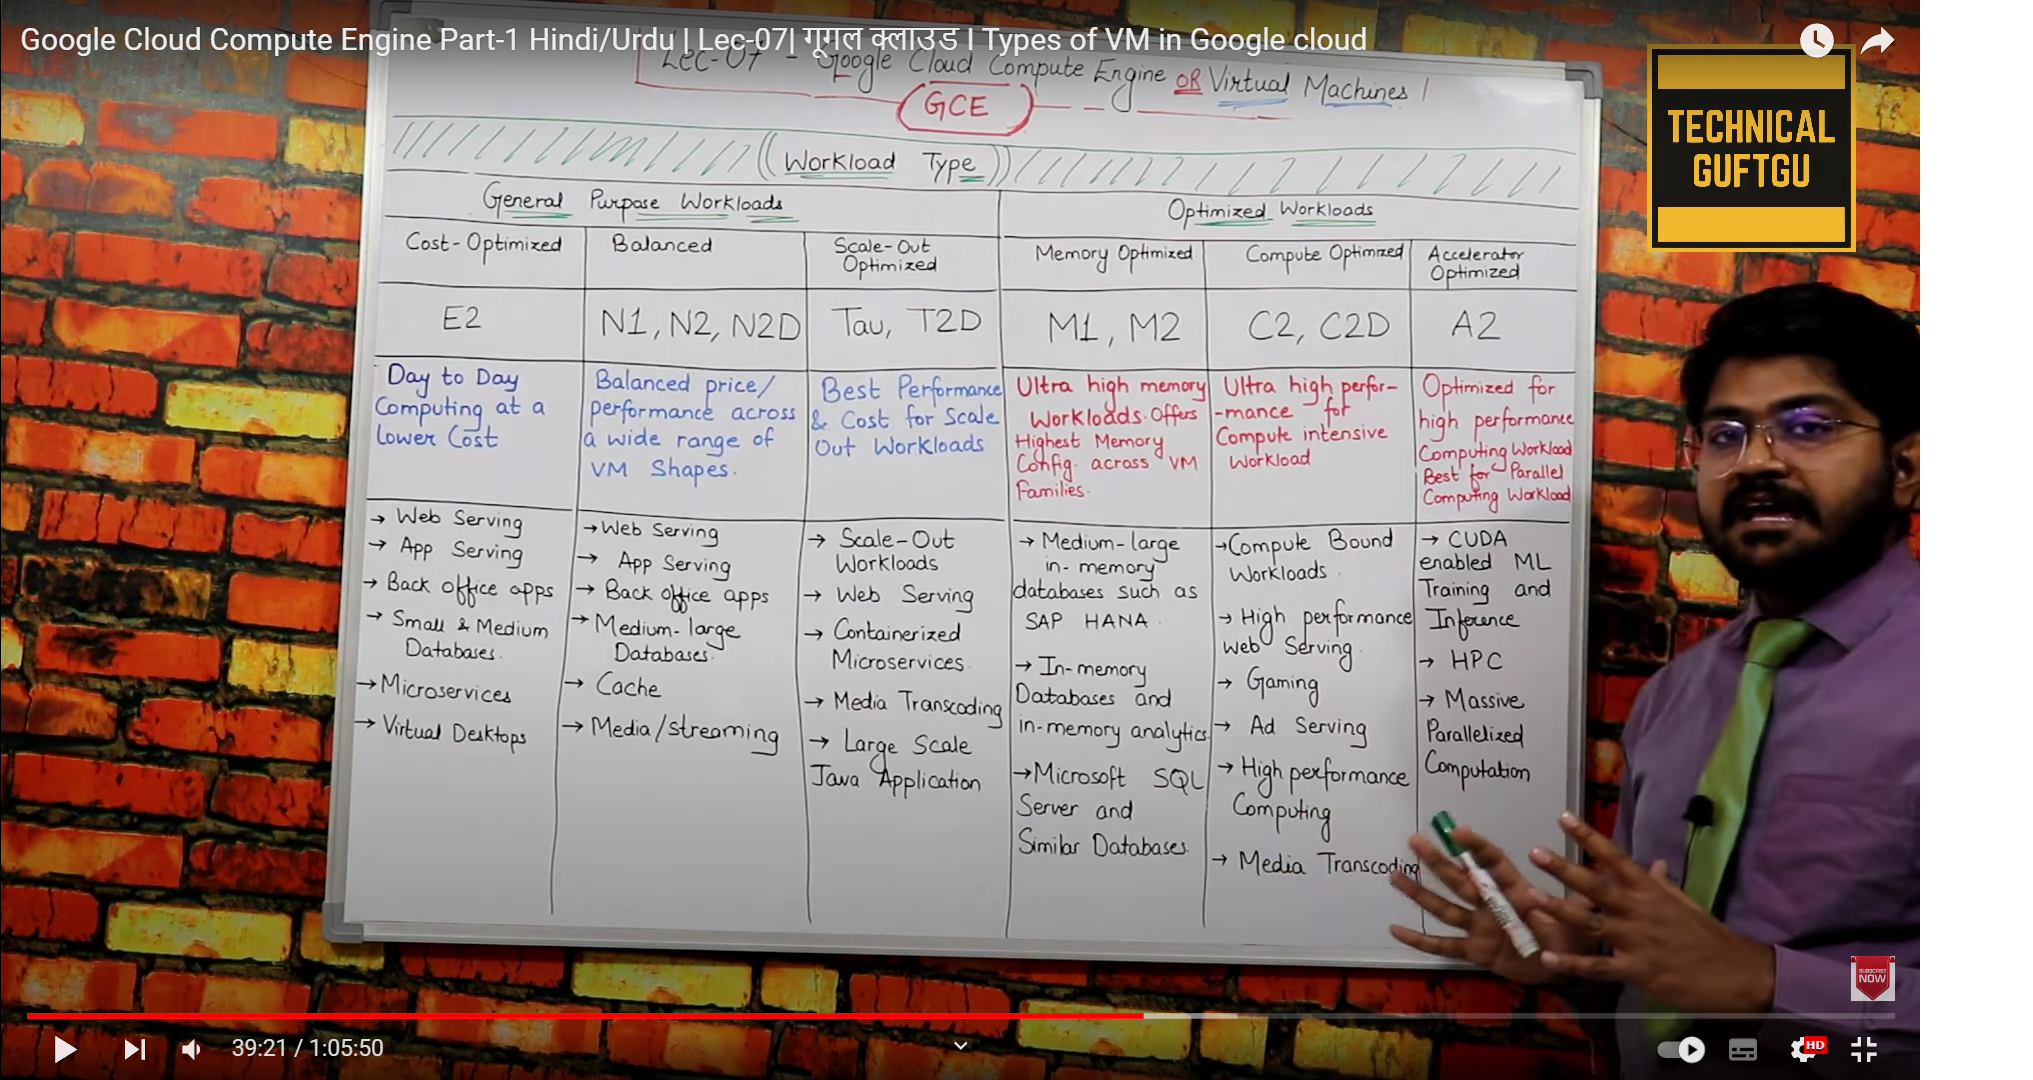 Google Cloud Compute Engine Part-1 Hindi/Urdu | Lec-07| गूगल क्लाउड I Types of VM in Google cloud
Lec-07 - Google Cloud Compute Engine OR Virtual Machines
GCE
TECHNICAL
GUFTGU
Workload Type
General Purpose Workloads
Optimized Workloads
Cost-Optimized
Balanced
Scale-Out
Optimized
Memory Optimized
Compute Optimized
Accelerator
Optimized
E2
N1, N2, N2D
Tau, T2D
M1, M2
C2, C2D
A2
Day to Day
Computing at a
Lower Cost
Balanced price/
performance across
a wide range of
VM Shapes.
Best Performance
& Cost for Scale
Out Workloads
Ultra high memory
Workloads. Offers
Highest Memory
Config. across VM
Families.
Ultra high perfor-
-mance for
Compute intensive
Workload
Optimized for
high performance
Computing Workload
Best for Parallel
Computing Workload
→ Web Serving
→ App Serving
→ Back office apps
→ Small & Medium
Databases.
→ Microservices
→ Virtual Desktops
→ Web Serving
→ App Serving
→ Back office apps
→ Medium-large
Databases.
→ Cache
→ Media/streaming
→ Scale-Out
Workloads
→ Web Serving
→ Containerized
Microservices.
→ Media Transcoding
→ Large Scale
Java Application
→ Medium-large
in-memory
databases such as
SAP HANA.
→ In-memory
Databases and
in-memory analytics.
→ Microsoft SQL
Server and
Similar Databases.
→ Compute Bound
Workloads.
→ High performance
Web Serving.
→ Gaming
→ Ad Serving
→ High performance
Computing
→ Media Transcoding
→ CUDA
enabled ML
Training and
Inference
→ HPC
→ Massive
Parallelized
Computation
SUBSCRIBE
NOW
39:21 / 1:05:50
HD